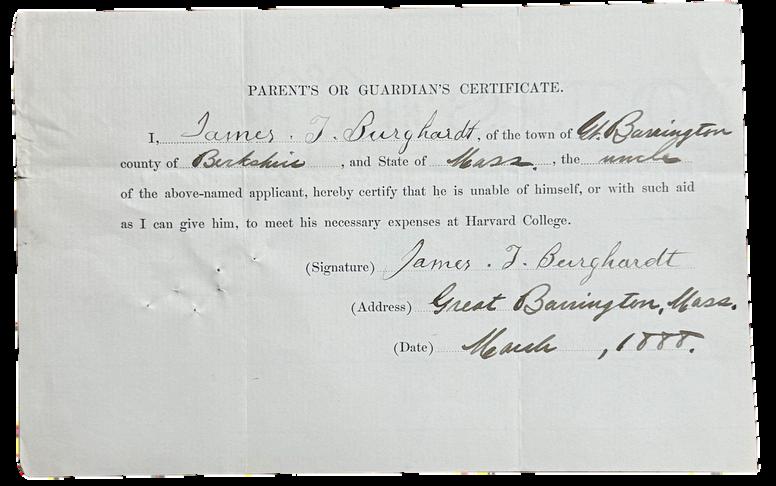 PARENT'S OR GUARDIAN'S CERTIFICATE.
I, James. T. Burghardt, of the town of Gt. Barrington
county of Berkshire, and State of Mass., the uncle
of the above-named applicant, hereby certify that he is unable of himself, or with such aid
as I can give him, to meet his necessary expenses at Harvard College.
(Signature) James. T. Burghardt
(Address) Great Barrington, Mass.
(Date) March, 1888.